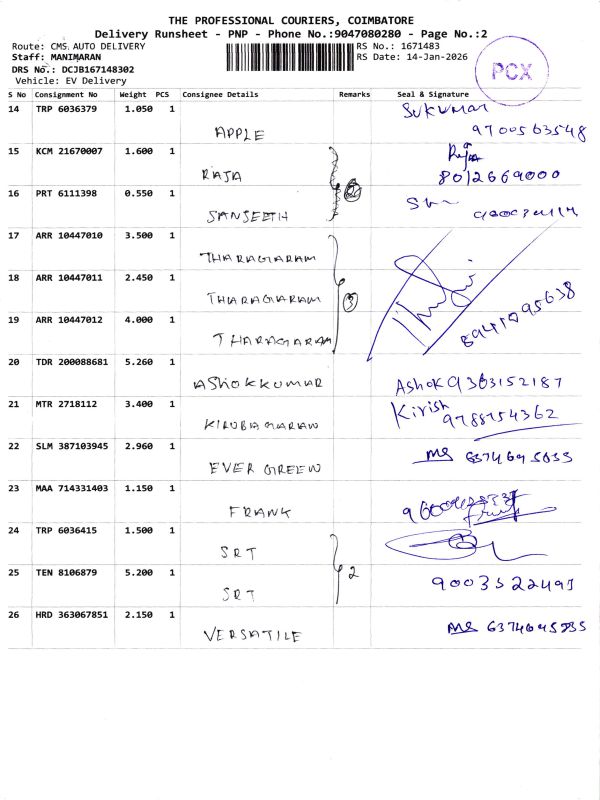 THE PROFESSIONAL COURIERS, COIMBATORE
Delivery Runsheet - PNP - Phone No.:9047080280 - Page No.:2
Route: CMS AUTO DELIVERY RS No.: 1671483
Staff: MANIMARAN RS Date: 14-Jan-2026
DRS No.: DCJB167148302
Vehicle: EV Delivery
PCX
S No Consignment No Weight PCS Consignee Details Remarks Seal & Signature
14 TRP 6036379 1.050 1 APPLE Sukumar
9700563548
15 KCM 21670007 1.600 1 RAJA Raja
8012669000
16 PRT 6111398 0.550 1 SANJEETH
17 ARR 10447010 3.500 1 THARAGARAM
18 ARR 10447011 2.450 1 THARAGARAM 3
19 ARR 10447012 4.000 1 THARAGARAM 8941095638
20 TDR 200088681 5.260 1 ASHOKKUMAR Ashok 9363152187
21 MTR 2718112 3.400 1 KIRUBAGARAN Kirish
9788754362
22 SLM 387103945 2.960 1 EVER GREEN MS
23 MAA 714331403 1.150 1 FRANK
24 TRP 6036415 1.500 1 SRT
25 TEN 8106879 5.200 1 SRT 2
26 HRD 363067851 2.150 1 VERSATILE MS